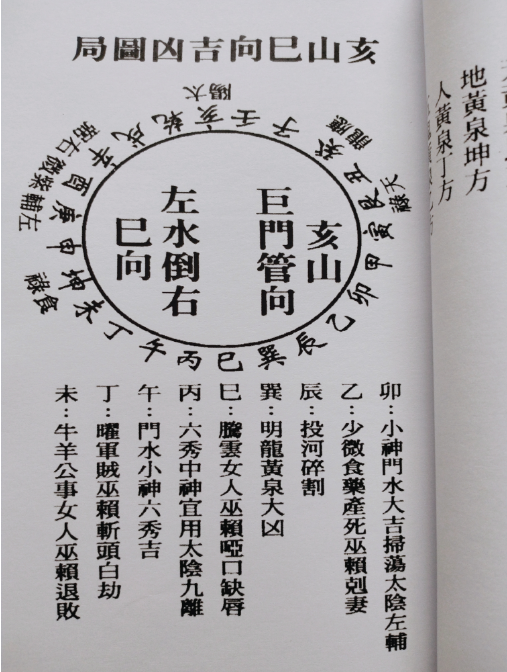 亥山巳向吉凶圖局
太陽
子壬亥乾戌辛酉庚申坤未丁午丙巳巽辰乙卯甲寅艮丑癸
應龍
天祿
右弼
紫微
左輔
食祿
亥山
巨門管向
左水倒右
巳向
卯：小神門水大吉掃蕩太陰左輔
乙：少微食藥產死巫賴剋妻
辰：投河碎割
巽：明龍黃泉大凶
巳：騰雲女人巫賴啞口缺唇
丙：六秀中神宜用太陰九離
午：門水小神六秀吉
丁：曜軍賊巫賴斬頭白劫
未：牛羊公事女人巫賴退敗
地黃泉坤方
人黃泉丁方